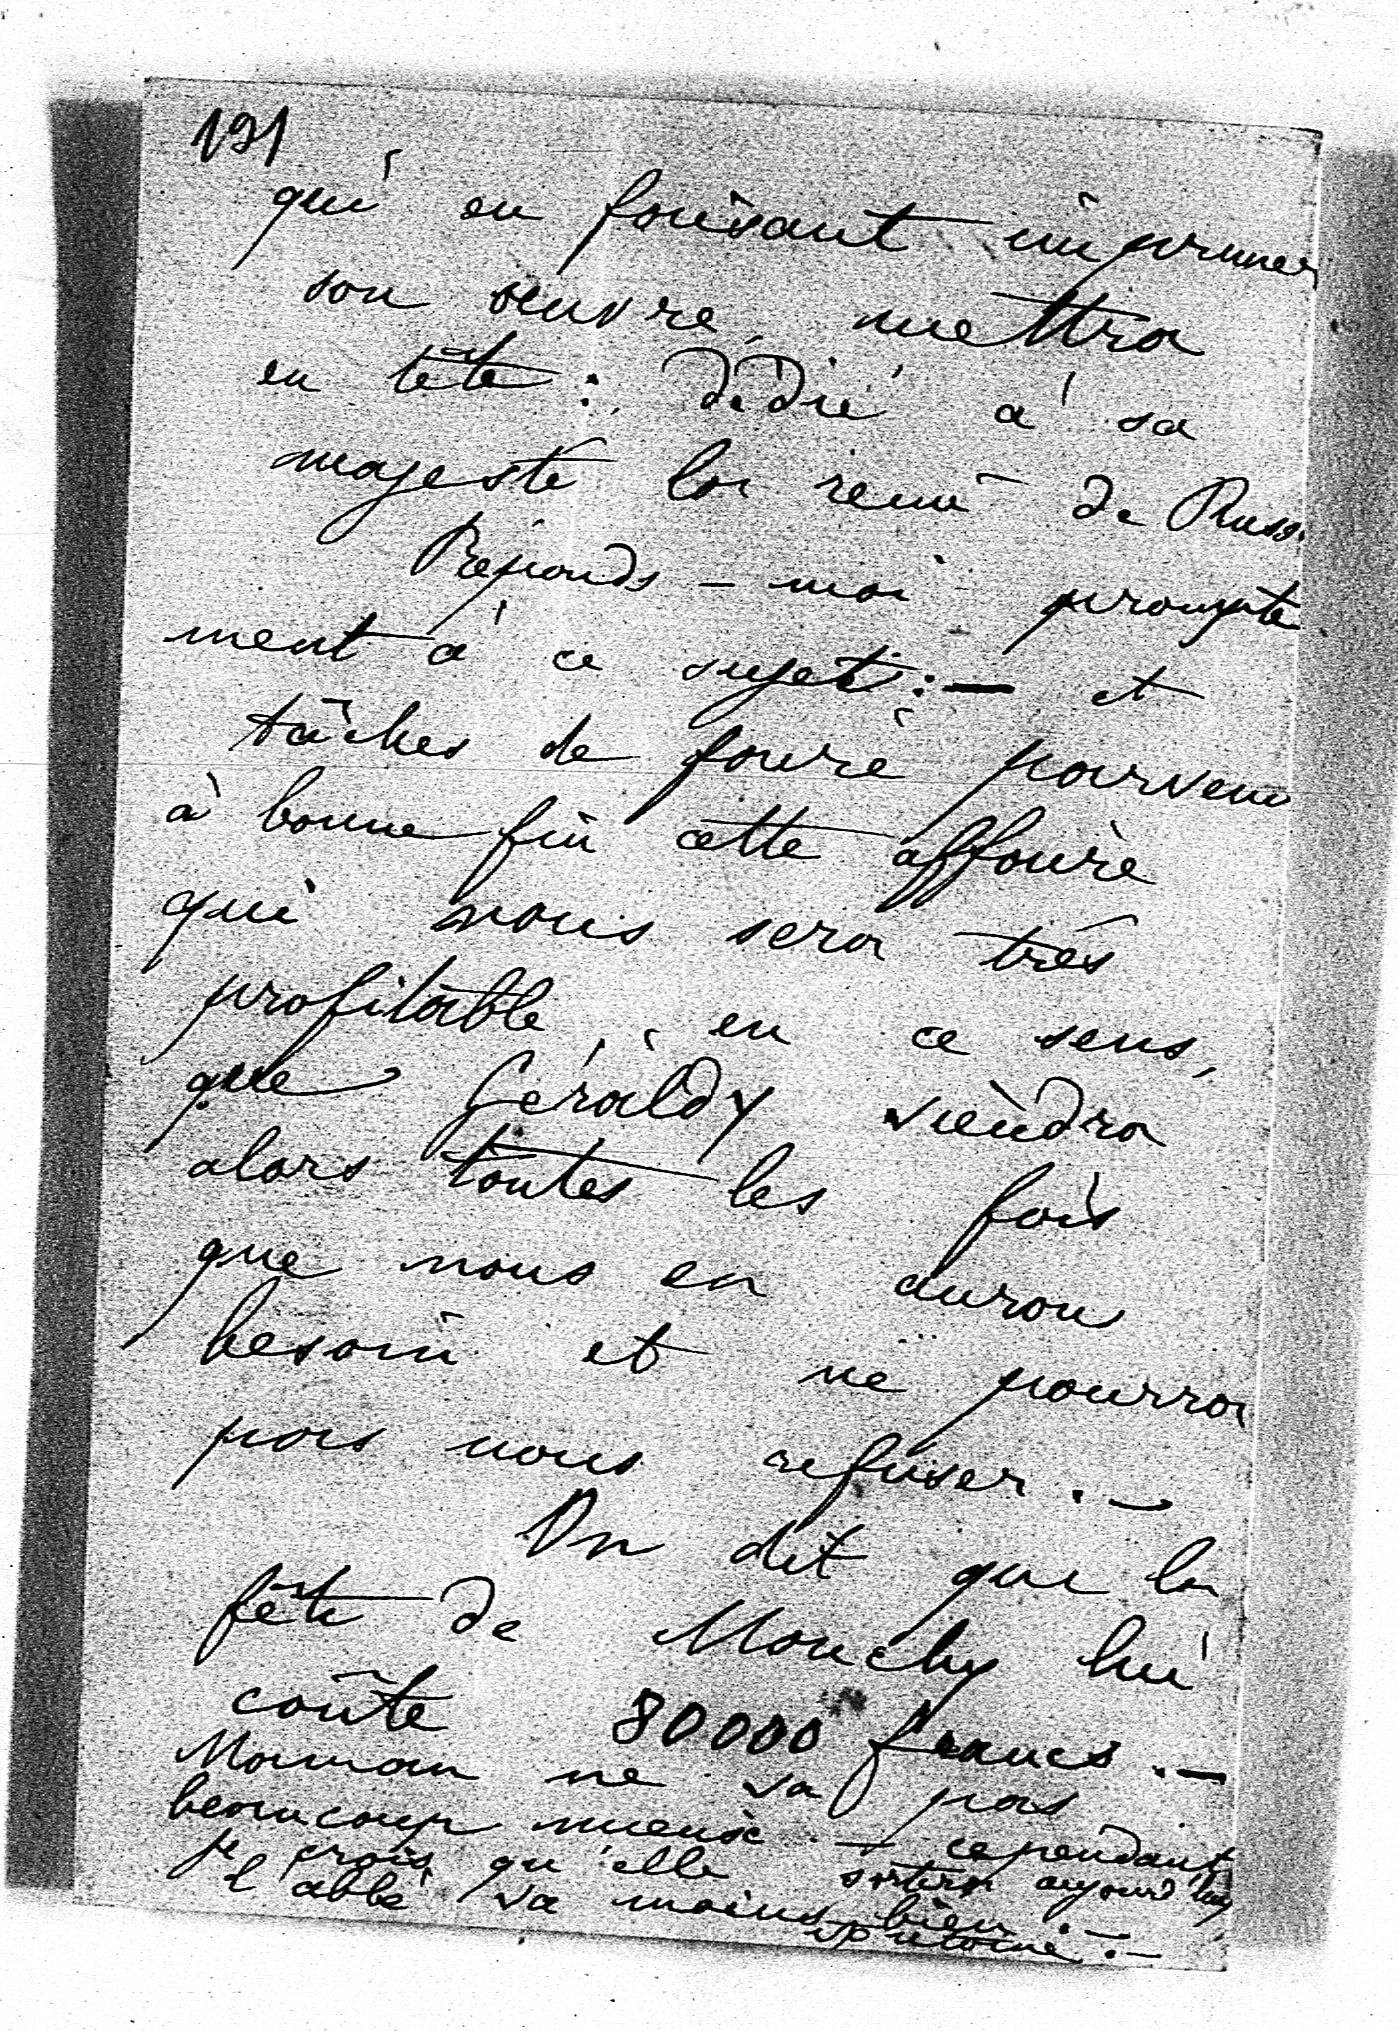 121
qui en faisant imprimer
son oeuvre, mettra
en tête : dédié à sa
majesté la reine de Russ.
Réponds - moi prompte
ment à ce sujet : — et
tâches de faire parvenir
à bonne fin cette affaire
qui nous sera très
profitable, en ce sens,
que Géraldy viendra
alors toutes les fois
que nous en aurons
besoin et ne pourra
pas nous refuser. —
On dit que la
fête de Mouchy lui
coûte 80000 francs. —
Maman ne va pas
beaucoup mieux — cependant
je crois qu'elle sortira aujourd'hui
l'abbé va moins bien